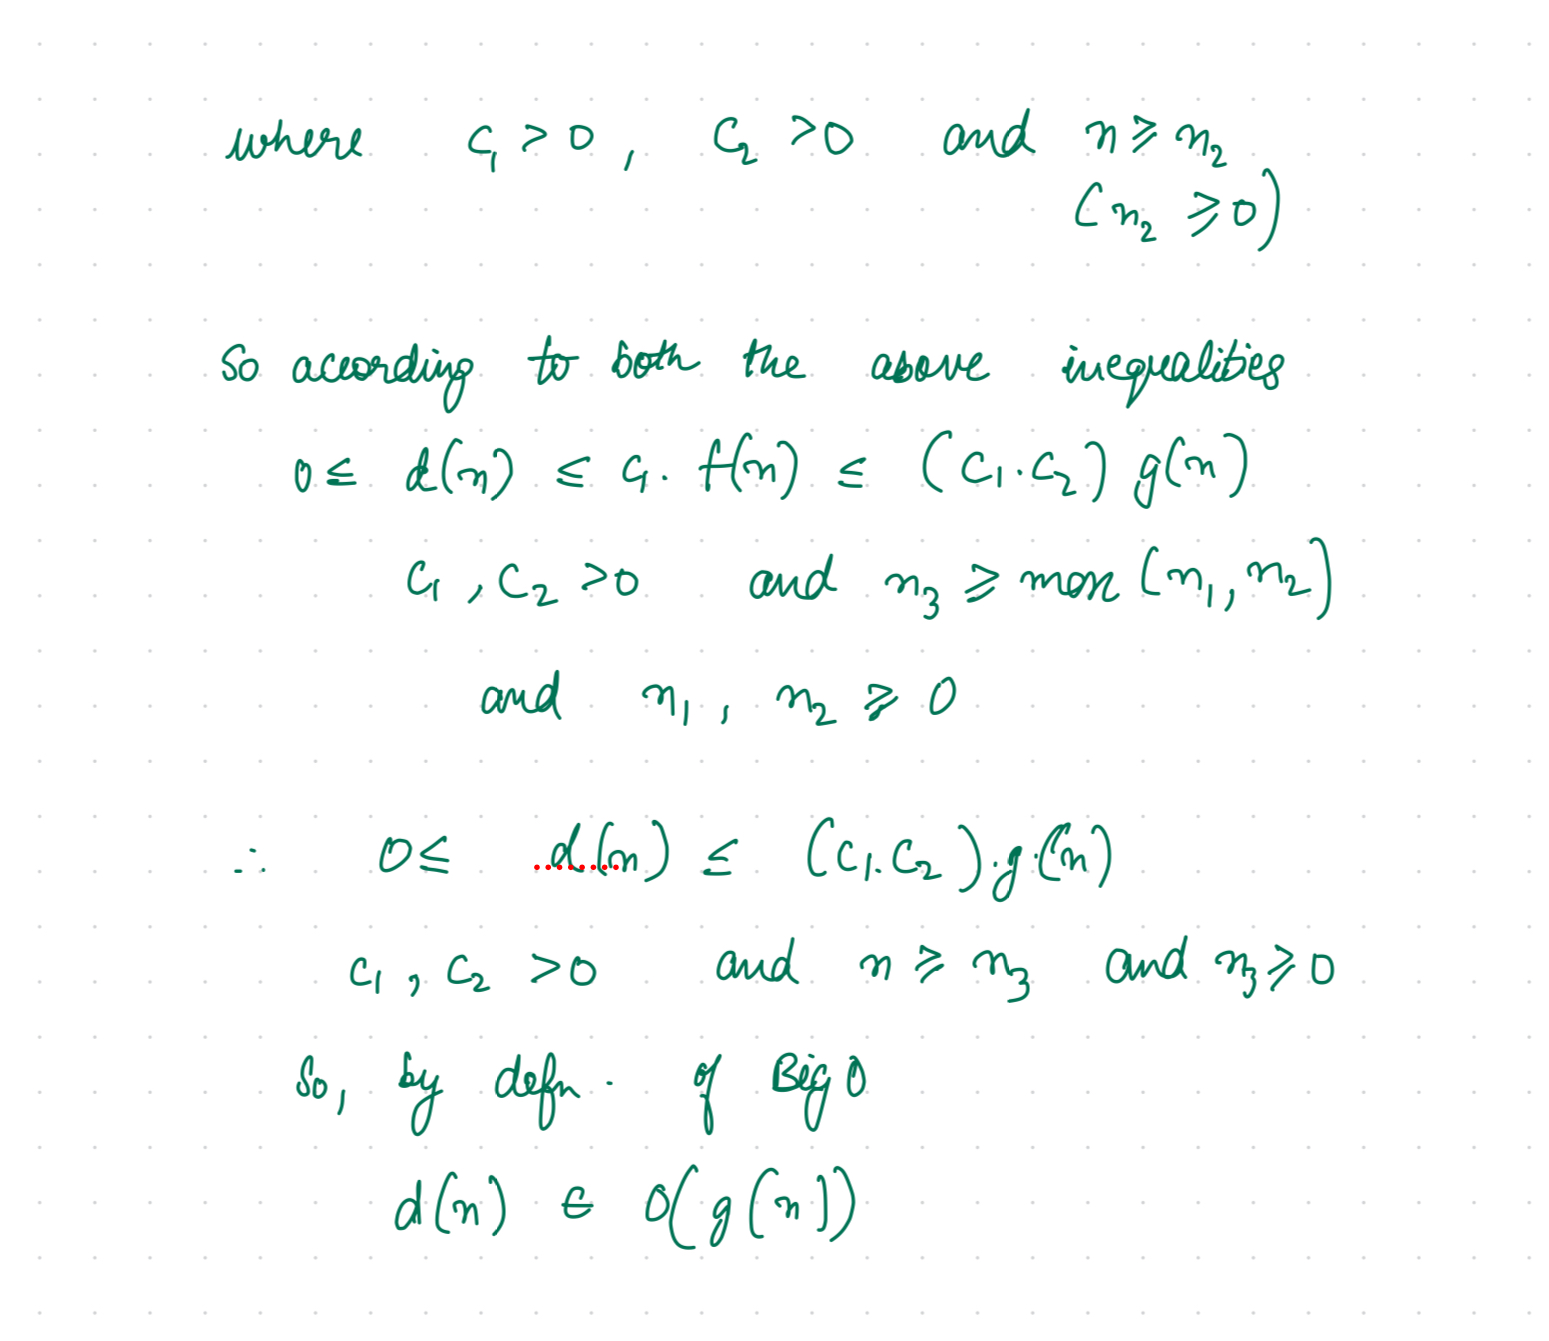 where c₁ > 0 , c₂ > 0 and n ≥ n₂
(n₂ ≥ 0)
So according to both the above inequalities
0 ≤ d(n) ≤ c₁. f(n) ≤ (c₁.c₂) g(n)
c₁ , c₂ > 0 and n₃ ≥ max (n₁, n₂)
and n₁ , n₂ ≥ 0
∴ 0 ≤ d(n) ≤ (c₁.c₂).g(n)
c₁ , c₂ > 0 and n ≥ n₃ and n₃ ≥ 0
So, by defn. of Big O
d(n) ∈ O(g(n))